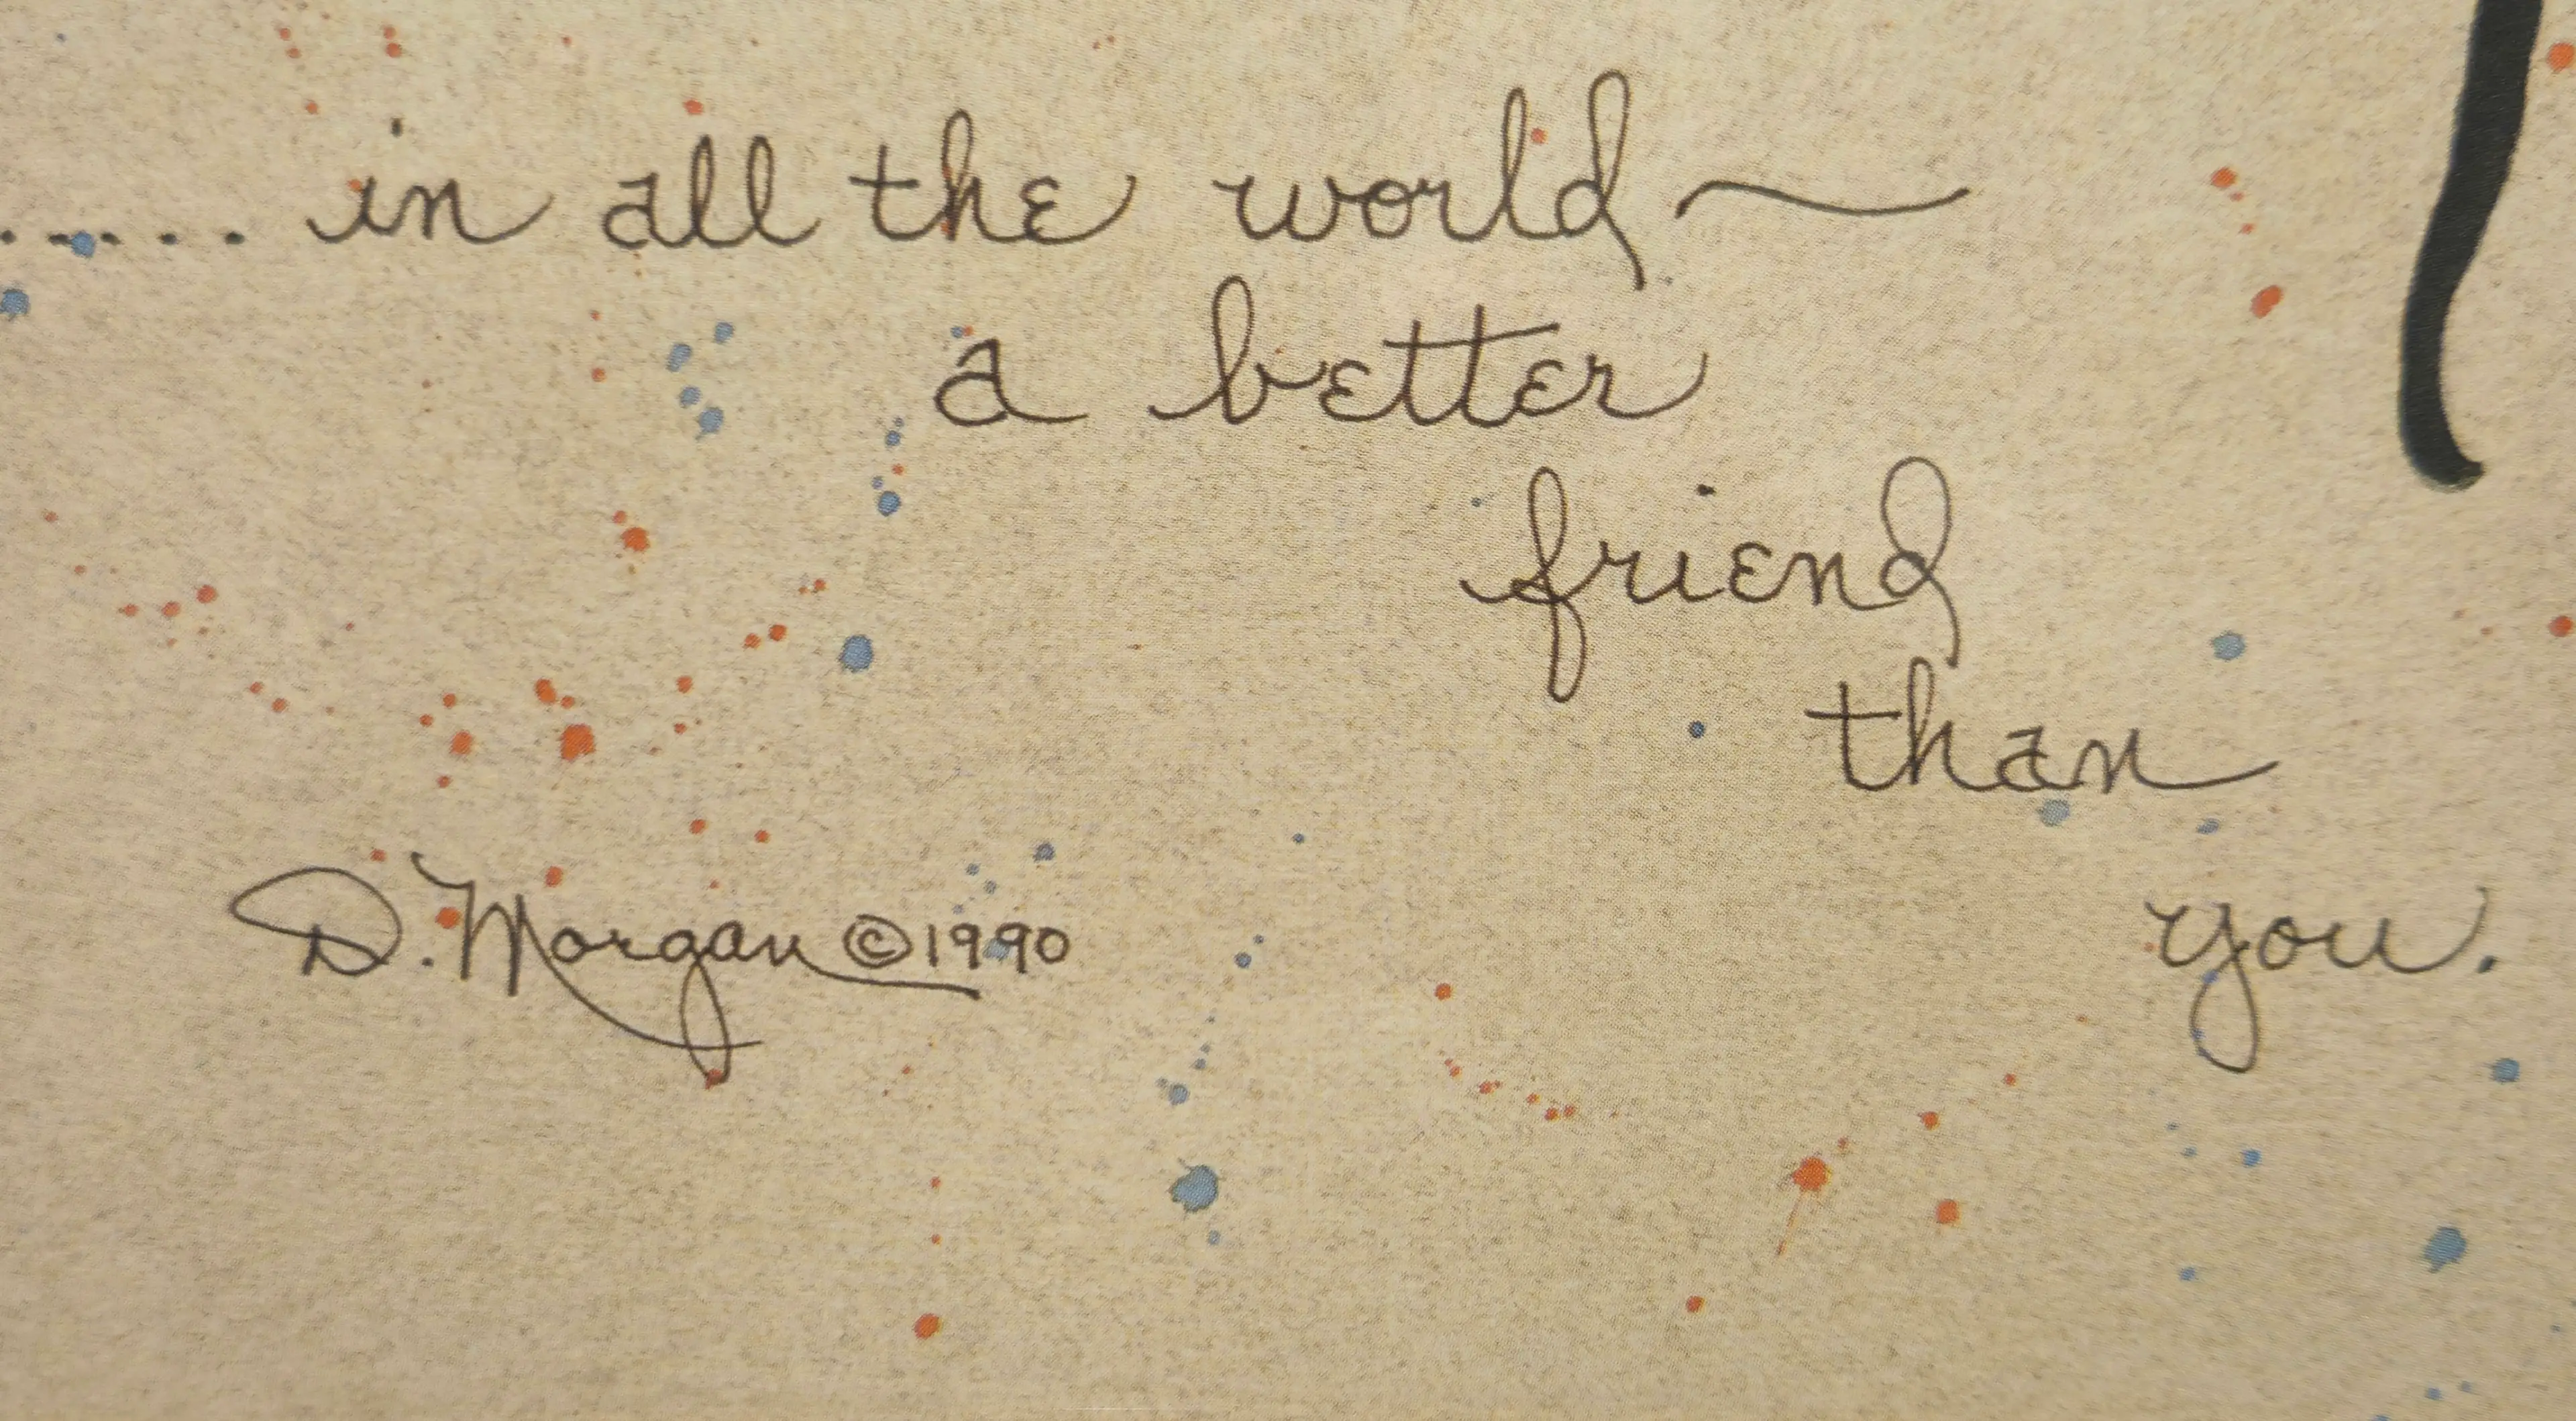 ..... in all the world ~
a better
friend
than
you.
D. Morgan ©1990